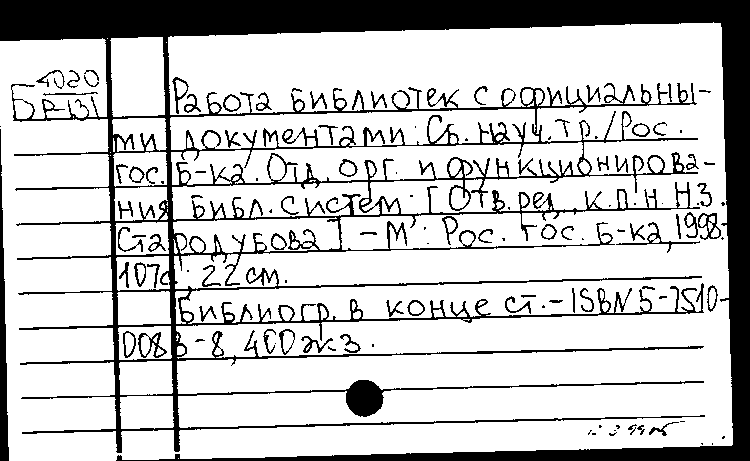 Б 4020
Р-131
Работа библиотек с официальны-
ми документами: Сб. науч. тр./Рос.
гос. б-ка. Отд. орг. и функционирова-
ния библ. систем; [Отв. ред. к.п.н. Н.З.
Стародубова]. - М.: Рос. гос. б-ка, 1998.-
107с.; 22 см.
Библиогр. в конце ст. - ISBN 5-7510-
0083-8, 400 экз.